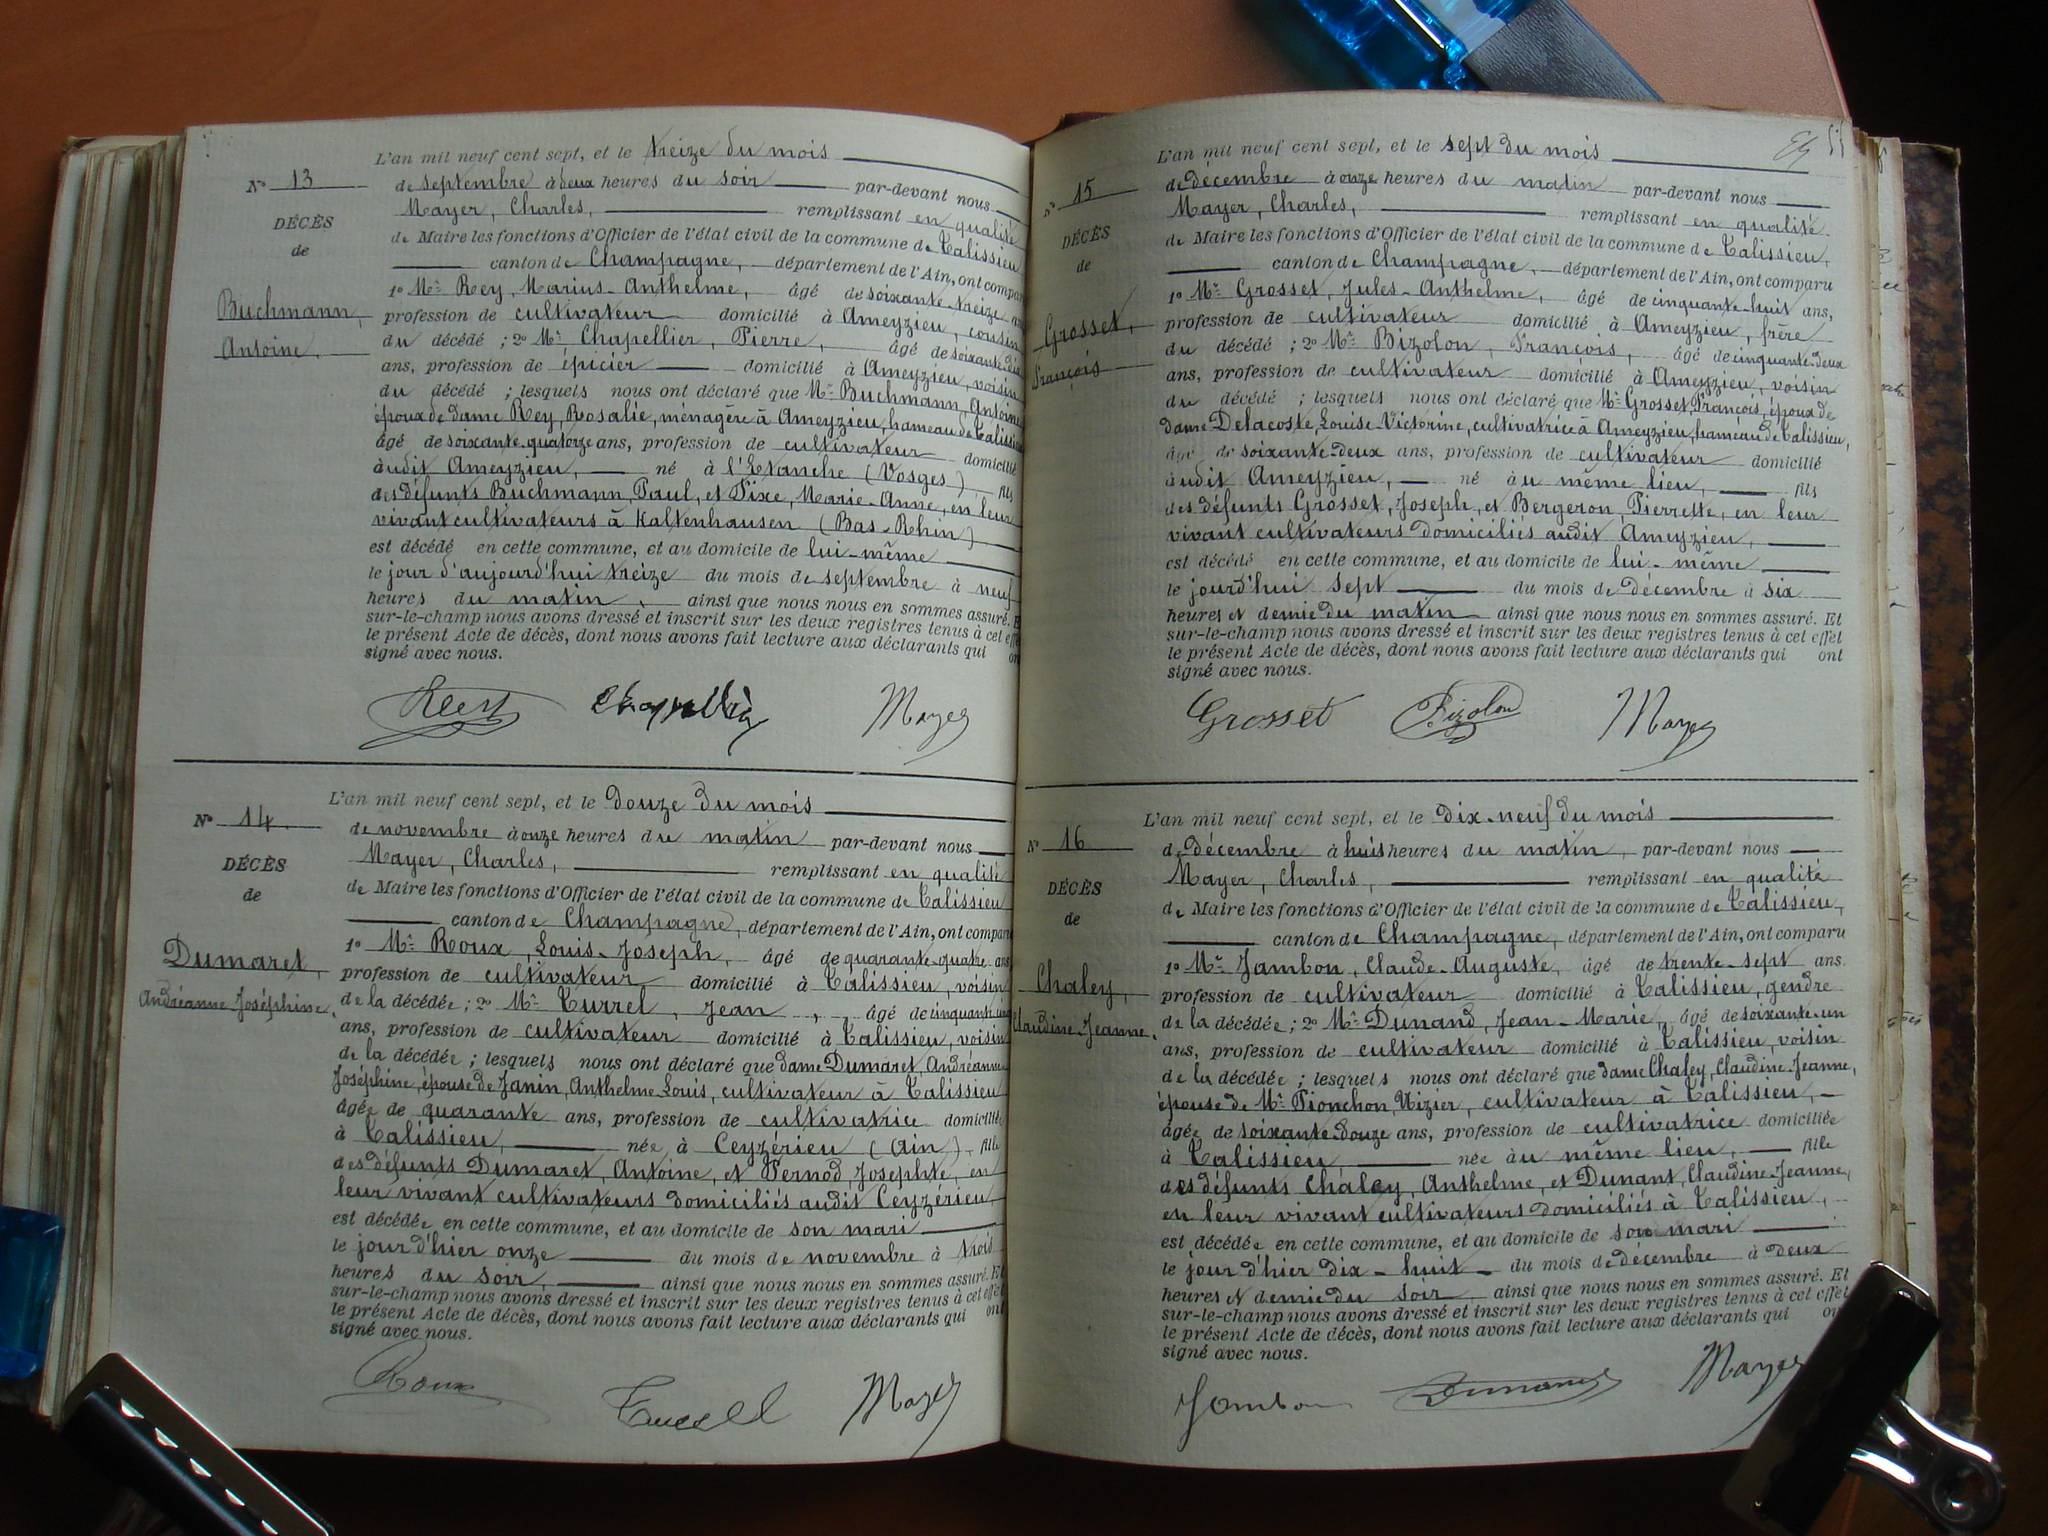 L'an mil neuf cent sept, et le treize du mois
N° 13
de septembre à deux heures du soir par-devant nous
Mayer, Charles, remplissant en qualité
DÉCÈS
de Maire les fonctions d'Officier de l'état civil de la commune de Talissieu
de
canton de Champagne, département de l'Ain, ont comparu
1° Mr Rey, Marius-Anthelme, âgé de soixante-treize
Buchmann,
profession de cultivateur domicilié à Ameyzieu, cousin
Antoine,
du décédé ; 2° Mr Chapellier, Pierre, âgé de soixante-dix
ans, profession de épicier domicilié à Ameyzieu, voisin
du décédé ; lesquels nous ont déclaré que Mr Buchmann, Antoine
époux de dame Rey, Rosalie, ménagère à Ameyzieu, hameau de Talissieu
âgé de soixante-quatorze ans, profession de cultivateur domicilié
àudit Ameyzieu, né à l'Étanche (Vosges), fils
des défunts Buchmann, Paul, et Fixe, Marie-Anne, en leur
vivant cultivateurs à Kaltenhausen (Bas-Rhin)
est décédé en cette commune, et au domicile de lui-même
le jour d'aujourd'hui treize du mois de septembre à neuf
heures du matin, ainsi que nous nous en sommes assuré. Et
sur-le-champ nous avons dressé et inscrit sur les deux registres tenus à cet effet
le présent Acte de décès, dont nous avons fait lecture aux déclarants qui ont
signé avec nous.
Chapellier Mayer
L'an mil neuf cent sept, et le douze du mois
N° 14
de novembre à onze heures du matin par-devant nous
Mayer, Charles, remplissant en qualité
DÉCÈS
de Maire les fonctions d'Officier de l'état civil de la commune de Talissieu
de
canton de Champagne, département de l'Ain, ont comparu
1° Mr Roux, Louis-Joseph, âgé de quarante-quatre ans
Dumaret,
profession de cultivateur domicilié à Talissieu, voisin
Andréanne Joséphine,
de la décédée ; 2° Mr Turrel, Jean, âgé de cinquante
ans, profession de cultivateur domicilié à Talissieu, voisin
de la décédée ; lesquels nous ont déclaré que dame Dumaret, Andréanne
Joséphine, épouse de Janin, Anthelme Louis, cultivateur à Talissieu
âgée de quarante ans, profession de cultivatrice domiciliée
à Talissieu, née à Ceyzérieu (Ain), fille
des défunts Dumaret, Antoine, et Pernod, Josephte, en
leur vivant cultivateurs domiciliés audit Ceyzérieu,
est décédée en cette commune, et au domicile de son mari
le jour d'hier onze du mois de novembre à trois
heures du soir, ainsi que nous nous en sommes assuré. Et
sur-le-champ nous avons dressé et inscrit sur les deux registres tenus à cet effet
le présent Acte de décès, dont nous avons fait lecture aux déclarants qui ont
signé avec nous.
Roux Turrell Mayer
L'an mil neuf cent sept, et le sept du mois
N° 15
de décembre à onze heures du matin par-devant nous
Mayer, Charles, remplissant en qualité
DÉCÈS
de Maire les fonctions d'Officier de l'état civil de la commune de Talissieu,
de
canton de Champagne, département de l'Ain, ont comparu
1° Mr Grosset, Jules-Anthelme, âgé de cinquante-huit ans,
Grosset,
profession de cultivateur domicilié à Ameyzieu, frère
François
du décédé ; 2° Mr Bizolon, François, âgé de cinquante-deux
ans, profession de cultivateur domicilié à Ameyzieu, voisin
du décédé ; lesquels nous ont déclaré que Mr Grosset, François, époux de
dame Delacoste, Louise-Victorine, cultivatrice à Ameyzieu, hameau de Talissieu,
âgé de soixante-deux ans, profession de cultivateur domicilié
àudit Ameyzieu, né àu même lieu, fils
des défunts Grosset, Joseph, et Bergeron, Pierrette, en leur
vivant cultivateurs domiciliés audit Ameyzieu,
est décédé en cette commune, et au domicile de lui-même
le jourd'hui sept du mois de décembre à six
heures et demie du matin ainsi que nous nous en sommes assuré. Et
sur-le-champ nous avons dressé et inscrit sur les deux registres tenus à cet effet
le présent Acte de décès, dont nous avons fait lecture aux déclarants qui ont
signé avec nous.
Grosset Bizolon Mayer
L'an mil neuf cent sept, et le dix-neuf du mois
N° 16
de décembre à huit heures du matin, par-devant nous
Mayer, Charles, remplissant en qualité
DÉCÈS
de Maire les fonctions d'Officier de l'état civil de la commune de Talissieu,
de
canton de Champagne, département de l'Ain, ont comparu
1° Mr Jambon, Claude-Auguste, âgé de trente-sept ans.
Chaley,
profession de cultivateur domicilié à Talissieu, gendre
Claudine-Jeanne,
de la décédée ; 2° Mr Dunand, Jean-Marie, âgé de soixante-un
ans, profession de cultivateur domicilié à Talissieu, voisin
de la décédée ; lesquels nous ont déclaré que dame Chaley, Claudine-Jeanne,
épouse de Mr Pionchon, Nizier, cultivateur à Talissieu,
âgée de soixante-douze ans, profession de cultivatrice domiciliée
à Talissieu, née àu même lieu, fille
des défunts Chaley, Anthelme, et Dunant, Claudine-Jeanne,
en leur vivant cultivateurs domiciliés à Talissieu,
est décédée en cette commune, et au domicile de son mari
le jour d'hier dix-huit du mois de décembre à deux
heures et demie du soir, ainsi que nous nous en sommes assuré. Et
sur-le-champ nous avons dressé et inscrit sur les deux registres tenus à cet effet
le présent Acte de décès, dont nous avons fait lecture aux déclarants qui
signé avec nous.
Jambon Dunand Mayer